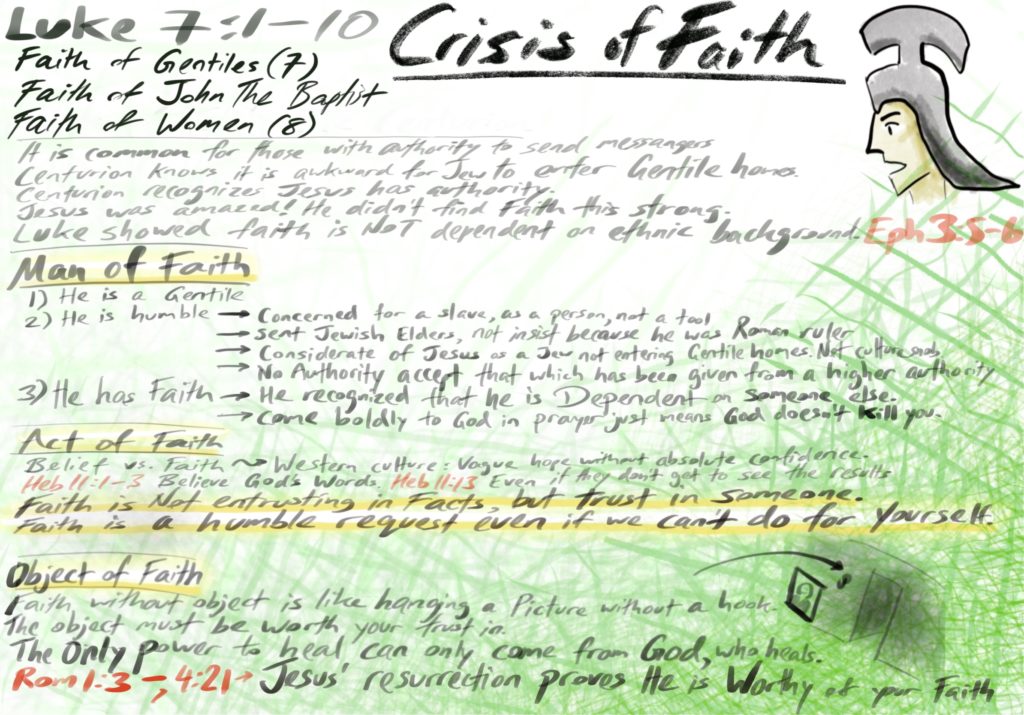 Luke 7:1-10
Crisis of Faith
Faith of Gentiles (7)
Faith of John The Baptist
Faith of Women (8)
It is common for those with authority to send messangers
Centurion knows it is awkward for Jew to enter Gentile homes.
Centurion recognizes Jesus has authority.
Jesus was amazed! He didn't find Faith this strong.
Luke showed faith is NOT dependent on ethnic background. Eph 3:5-6
Man of Faith
1) He is a Gentile
2) He is humble → Concerned for a slave, as a person, not a tool
→ Sent Jewish Elders, not insist because he was Roman ruler
→ Considerate of Jesus as a Jew not entering Gentile homes. Not culture snob
→ No Authority accept that which has been given from a higher authority
3) He has Faith → He recognized that he is Dependent on someone else.
→ Come boldly to God in prayer just means God doesn't kill you.
Act of Faith
Belief vs. Faith ~> Western culture: Vague hope without absolute confidence.
Heb 11:1-3 Believe God's Words. Heb 11:13 Even if they don't get to see the results
Faith is Not entrusting in Facts, but trust in someone.
Faith is a humble request even if we can't do for yourself.
Object of Faith
Faith without object is like hanging a Picture without a hook.
The object must be worth your trust in.
The Only power to heal can only come from God, who heals.
Rom 1:3-, 4:21 → Jesus' resurrection proves He is Worthy of your Faith